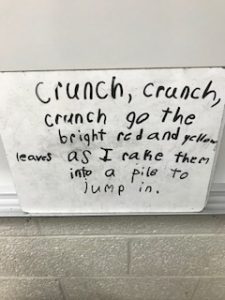 Crunch, crunch,
crunch go the
bright red and yellow
leaves as I rake them
into a pile to
jump in.